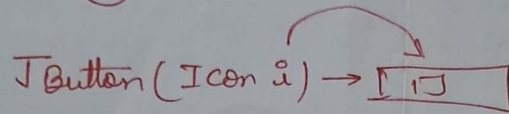 JButton (Icon i) →